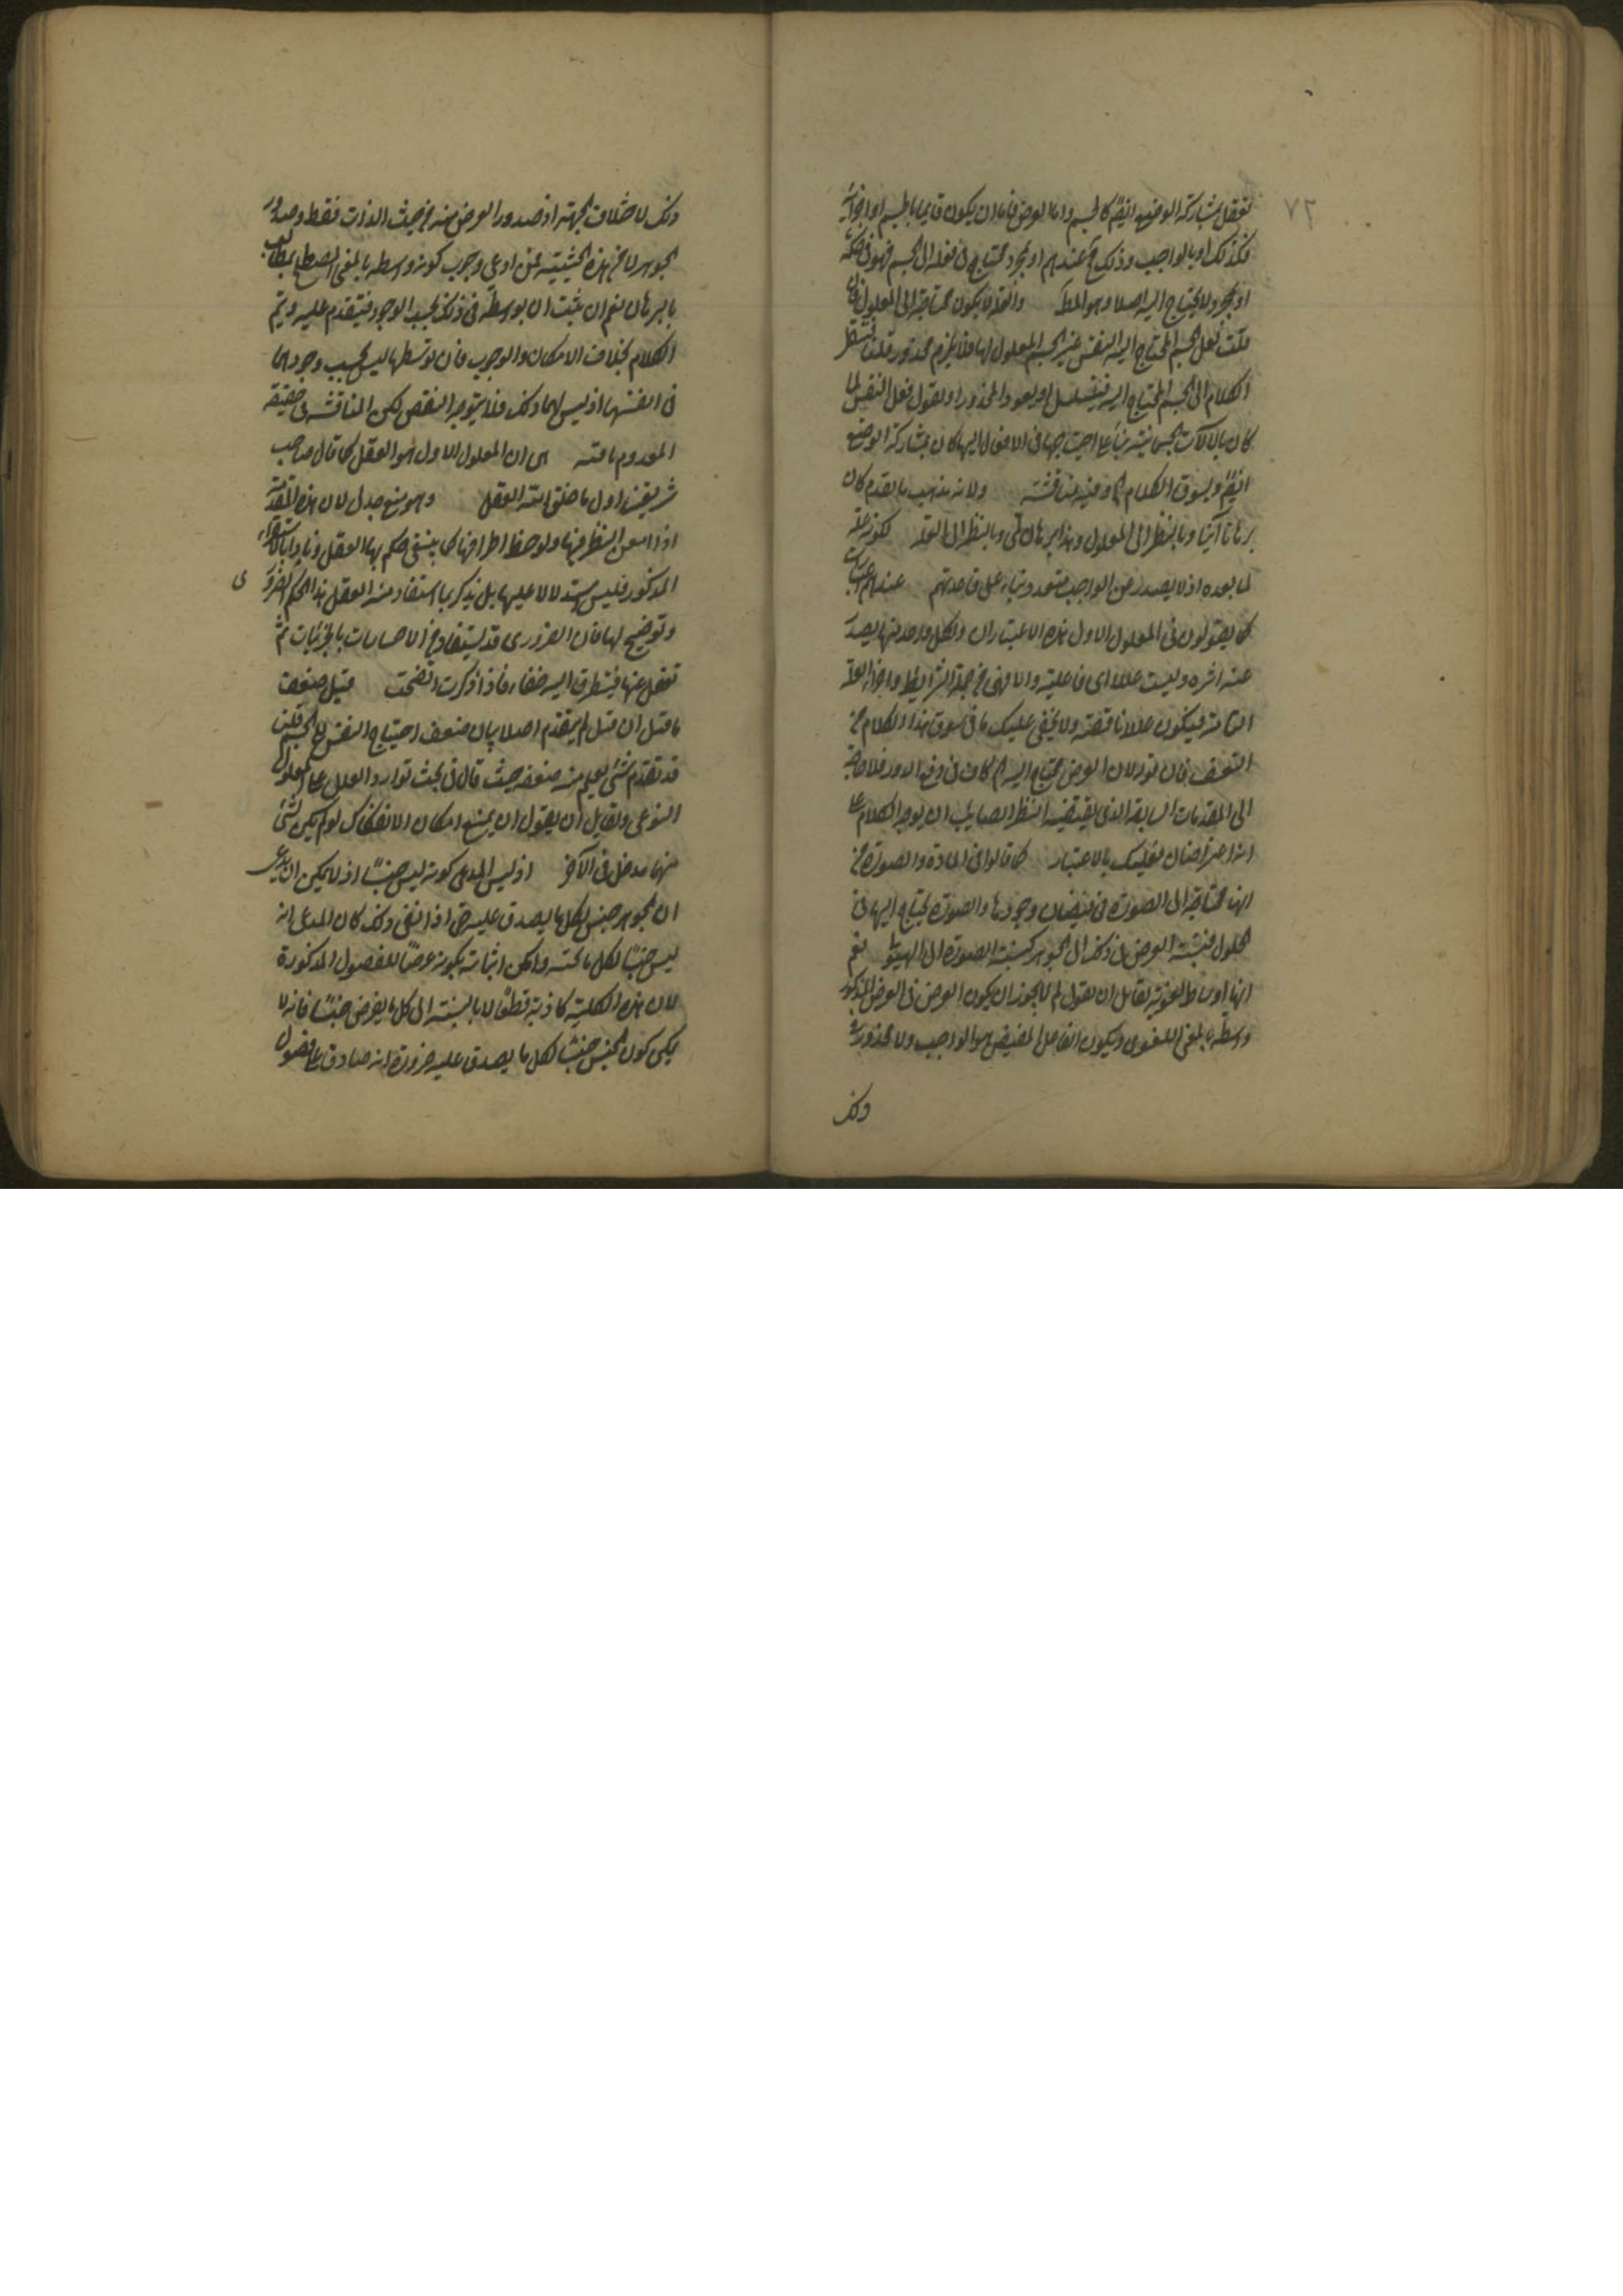 ٧٢
تعقل بمشاركة الوضع ايضا كالجسم واما العرض فاما ان يكون قايما بالجسم او اجزائه
فكذلك او بالواجب وذلك مح عندهم او مجرد محتاج في فعله الى الجسم فهو في حكمه
او مجرد لا يحتاج اليه اصلا وهو المط والعلة لا يكون محتاجة الى المعلول فان
قلت لعل الجسم المحتاج اليه النفس غير الجسم المعلول لها فلا يلزم محذور قلت ننقل
الكلام الى الجسم المحتاج اليه فيتسلسل او يعود المحذور او نقول فعل النفس لما
كان بالآلات الجسمانية بناء على احتياجها في الافعال اليها كان بمشاركة الوضع
ايضا ويسوق الكلام وفيه مناقشة ولانه مذهب ما تقدم كان
برهانا آنيا وبالنظر الى المعلول وهذا برهان لمي وبالنظر الى العلة لكونه علة
لما بعده اذ لا يصدر عن الواجب متعدد بناء على قاعدتهم عندهم اعتبارات
كما يقولون في المعلول الاول هذه الاعتبارات ولكل واحد منها يصدر
عنه اثره وليست عللا اي فاعلية والا فهي من جملة الشرايط واجزاء العلة
التامة فيكون عللا ناقصة ولا يخفى عليك ما في سوق هذا الكلام من
التعسف فان قوله لان العرض محتاج اليه كاف في دفع الدور فلا حاجة
الى المقدمات السابقة الذي يقتضيه النظر الصايب ان يوجه الكلام على
انه اعتراضان فعليك بالاعتبار كما قالوا في المادة والصورة من
انها محتاجة الى الصورة في فيضان وجودها والصورة يحتاج اليها في
الحلول فنسبة العرض في ذلك الى الجوهر كنسبة الصورة الى الهيولى نعم
انها اوساط لغوية لقايل ان يقول لم لا يجوز ان يكون العرض في الفرض المذكور
واسطة بالمعنى اللغوي ويكون الفاعل المفيض هو الواجب ولا محذور فيه
وذلك
وذلك لاختلاف الجهة اذ صدور العرض منه من حيث الذات فقط وصدور
الجوهر لا من هذه الحيثية فمن ادعى وجوب كونه واسطة بالمعنى المصطلح يطالب
بالبرهان نعم ان يثبت ان توسطه في ذلك بحسب الوجود فيتقدم عليه ويتم
الكلام بخلاف الامكان والوجوب فان توسطها ليس بحسب وجودهما
في انفسهما اذ ليس لهما ذلك فلا يتوجه النقض لكن المناقشة في حقيقة
المعدوم باقية اى ان المعلول الاول هو العقل كما قال صاحب
شريعتنا اول ما خلق الله العقل وهو منع جدلى لان هذه المقدمة
اذا امعن النظر فيها ولوحظ اطرافها كما ينبغي حكم بها العقل وتأيد بالاستقراء
المذكور فليس استدلالا عليها بل يذكر بما استفاد منه العقل هذا الحكم الضرورى
وتوضيح لها فان الضرورى قد يستفاد من الاحساسات بالجزئيات ثم
تغفل عنها فيتطرق اليه خفاء فاذا ذكرت اتضحت قيل ضعف
ما قيل ان قيل لم يتقدم اصلا بيان ضعف احتياج النفس الى الجسم قلت
قد تقدم شئ يعلم منه ضعفه حيث قال في بحث توارد العلل على المعلول
النوعى ولقايل ان يقول ان يمنع امكان الانفكاك لو لم يكن لشئ
منهما مدخل في الآخر اذ ليس المدعى كونه ليس جنسا اذ لا يمكن ان يدعى
ان الجوهر جنس لكل ما يصدق عليه حتى اذا نفى ذلك كان المدعى انه
ليس جنسا لكل ما تحته وامكن اثباته بكونه عرضا للفصول المذكورة
لان هذه الكلية كاذبة قطعا لا بالنسبة الى كل ما يفرض جنسا فانه لا
يمكن كون الجنس جنسا لكل ما يصدق عليه ضرورة انه صادق على فصول